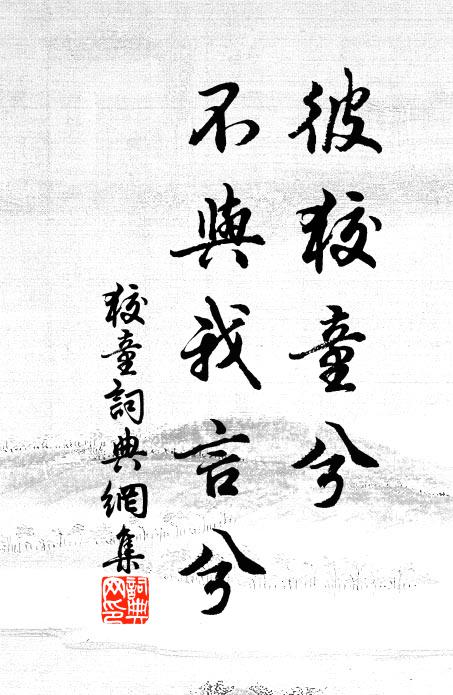 彼狡童兮
不與我言兮
狡童詞典網集
詞典
网印